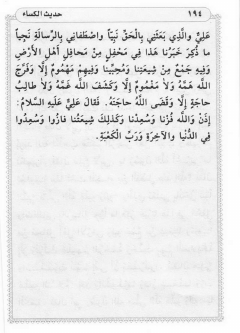 ١٩٤ حديث الكساء
عَلِيُّ وَالَّذِي بَعَثَنِي بِالْحَقِّ نَبِيّاً وَاصْطَفَانِي بِالرِّسَالَةِ نَجِيّاً
مَا ذُكِرَ خَبَرُنَا هَذَا فِي مَحْفِلٍ مِنْ مَحَافِلِ أَهْلِ الأَرْضِ
وَفِيهِ جَمْعٌ مِنْ شِيعَتِنَا وَمُحِبِّينَا وَفِيهِمْ مَهْمُومٌ إِلَّا وَفَرَّجَ
اللَّهُ هَمَّهُ وَلاَ مَغْمُومٌ إِلَّا وَكَشَفَ اللَّهُ غَمَّهُ وَلاَ طَالِبُ
حَاجَةٍ إِلَّا وَقَضَى اللَّهُ حَاجَتَهُ. فَقَالَ عَلِيٌّ عَلَيْهِ السَّلاَمُ:
إِذَنْ وَاللَّهِ فُزْنَا وَسُعِدْنَا وَكَذَلِكَ شِيعَتُنَا فَازُوا وَسُعِدُوا
فِي الدُّنْيَا وَالآخِرَةِ وَرَبِّ الْكَعْبَةِ.